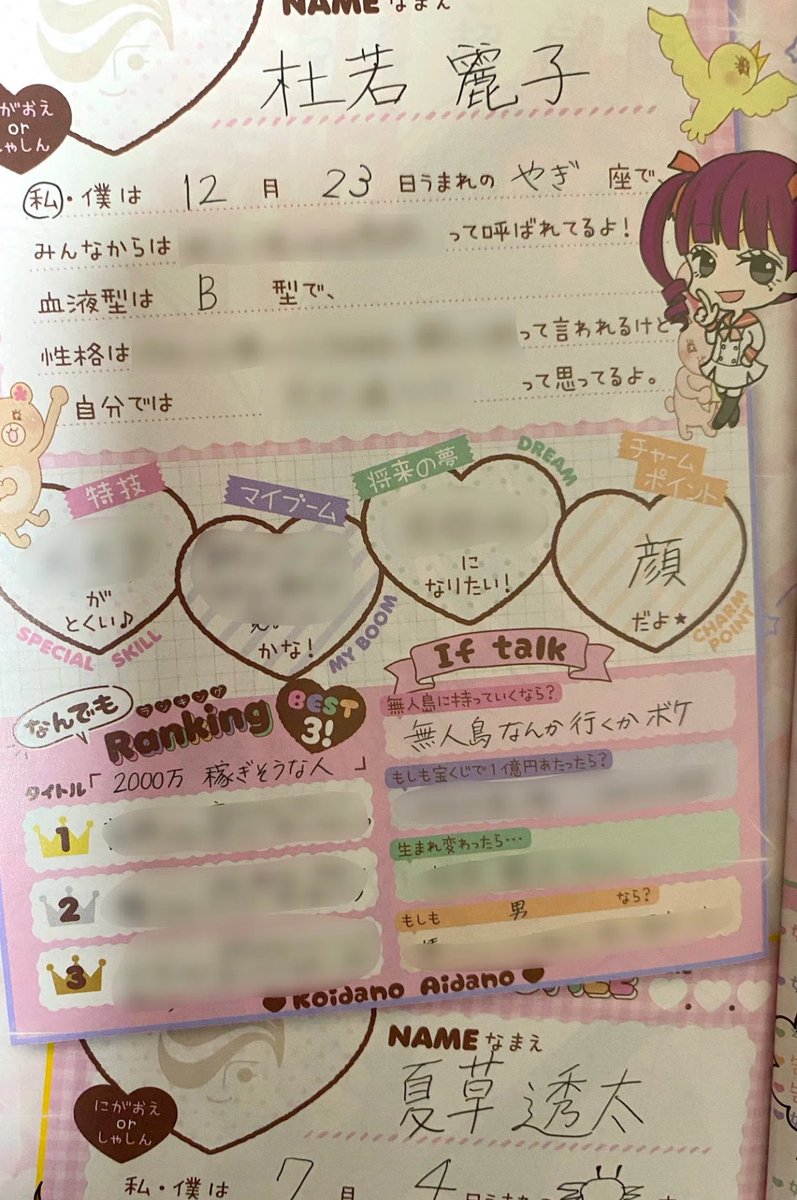 NAME なまえ
杜若 麗子
がおえ
or
しゃしん
私・僕は 12 月 23 日うまれの やぎ 座で、
みんなからは って呼ばれてるよ!
血液型は B 型で、
性格は って言われるけど
自分では って思ってるよ。
特技
が
とくい♪
SPECIAL SKILL
マイブーム
かな!
MY BOOM
将来の夢
DREAM
に
なりたい!
チャーム
ポイント
顔
だよ★
CHARM
POINT
なんでも
ランキング
Ranking
BEST
3!
タイトル「2000万 稼ぎそうな人」
1
2
3
If talk
無人島に持っていくなら?
無人島なんか行くかボケ
もしも宝くじで1億円あたったら?
生まれ変わったら…
もしも 男 なら?
♥ Koidano Aidano ♥
NAME なまえ
夏草 透太
にがおえ
or
しゃしん
私・僕は 7 月 4 日うまれの